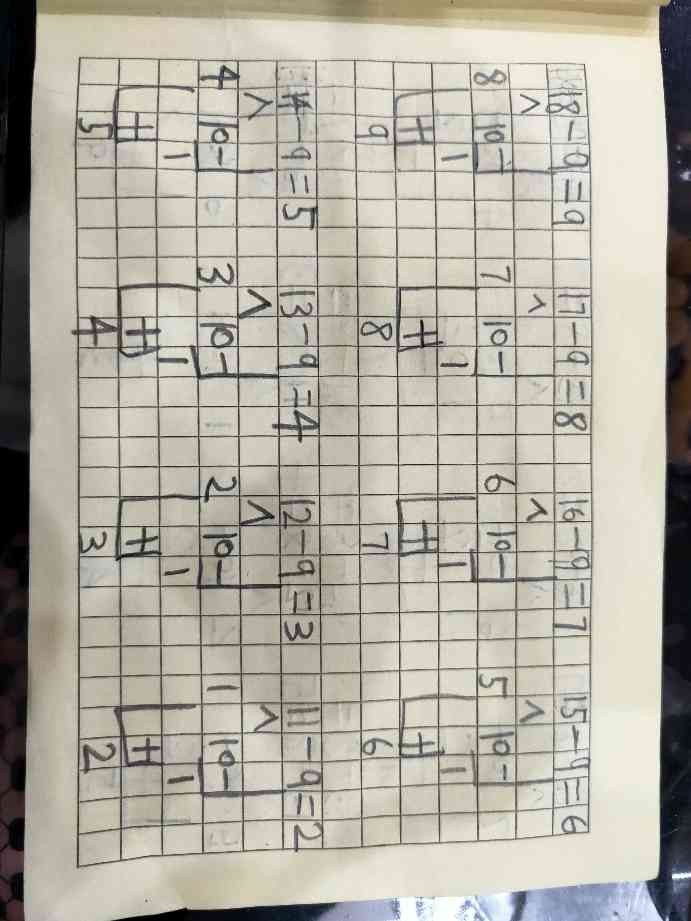 18-9=9 17-9=8 16-9=7 15-9=6
∧ ∧ ∧ ∧
8 10- 7 10- 6 10- 5 10-
1 1 1 1
+ + + +
9 8 7 6
14-9=5 13-9=4 12-9=3 11-9=2
∧ ∧ ∧ ∧
4 10- 3 10- 2 10- 1 10-
1 1 1 1
+ + + +
5 4 3 2